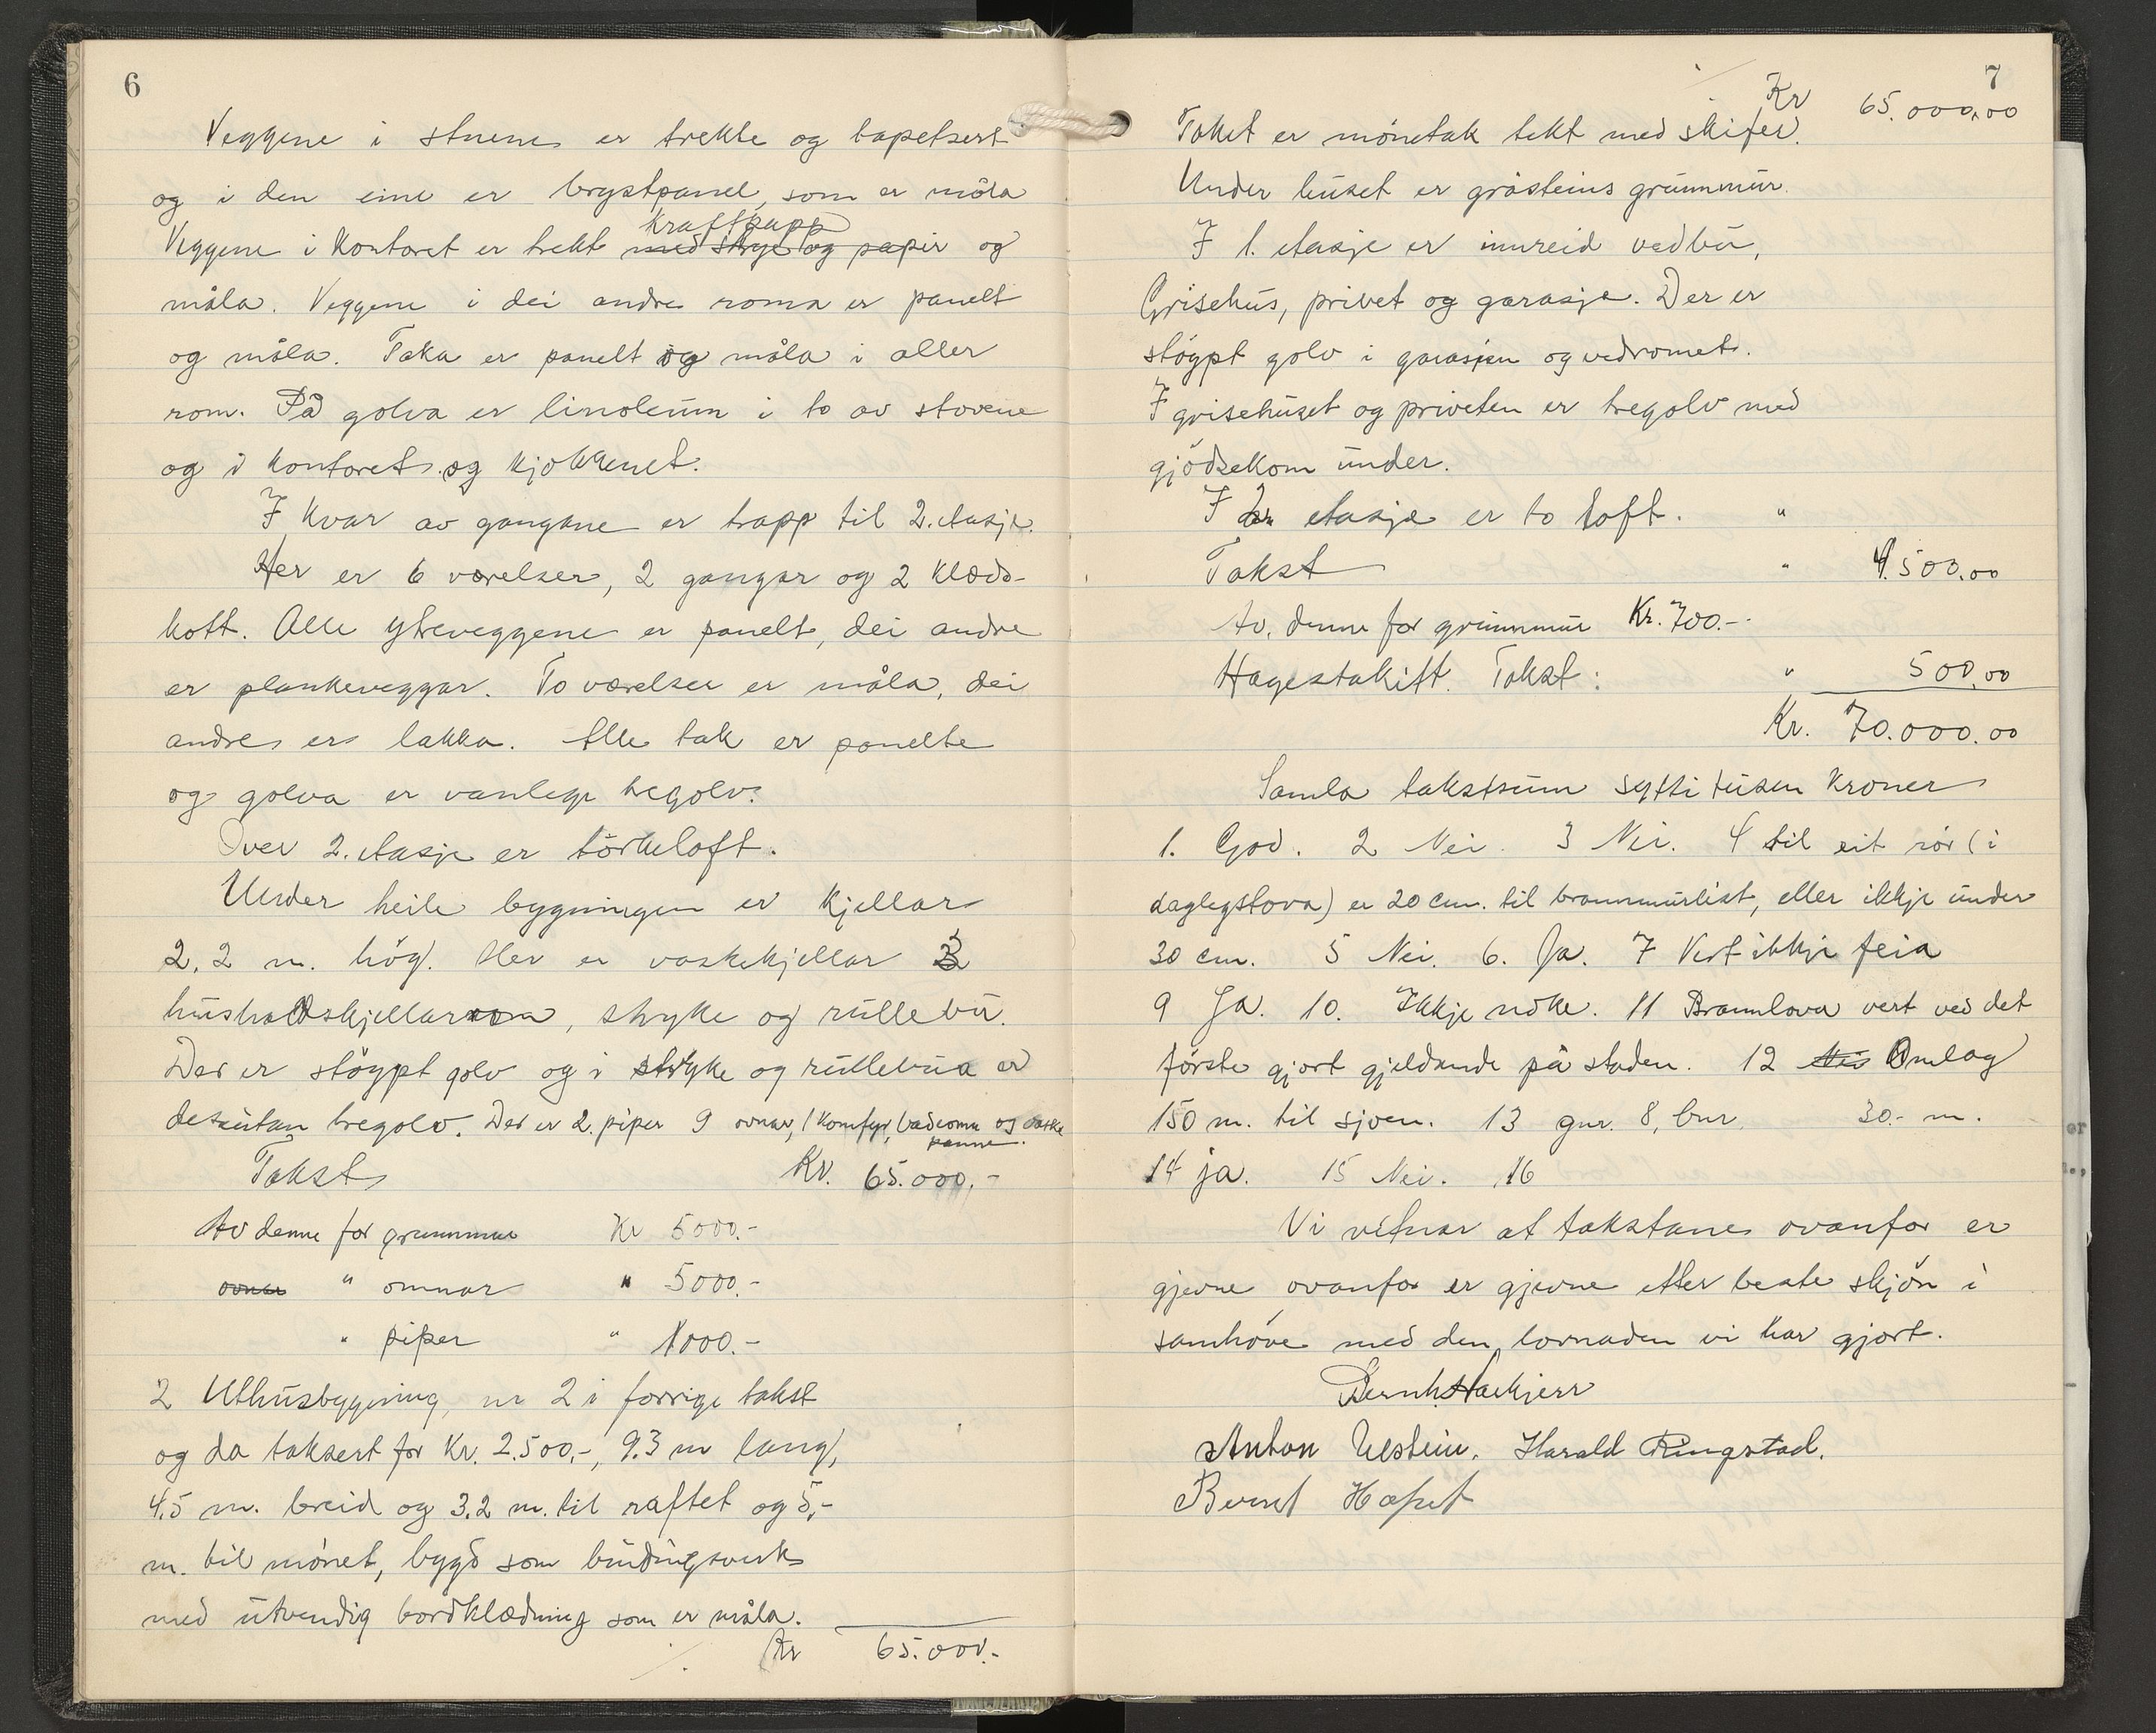 6
Veggene i stuene er trekte og tapetsert
og i den eine er brystpanel, som er måla
Kraftpapp
Veggene i Kontoret er trekt med strye og papir og
måla. Veggene i dei andre roma er panelt
og måla. Taka er panelt og måla i aller
rom. På golva er linoleum i to av stovene
og i kontoret og kjøkkenet.
I kvar av gangane er trapp til 2. etasje.
Her er 6 værelser, 2 gangar og 2 klæds-
kott. Alle ytreveggene er panelt, dei andre
er plankeveggar. To værelser er måla, dei
andre er lakka. Alle tak er panelte
og golva er vanlege tregolv.
Over 2. etasje er törkeloft.
Under heile bygningen er kjellar
2,2 m. hög. Her er vaskekjellar 3
husholdskjellarrom, stryke og rullebu.
Der er stöypt golv og i stryke og rullebua er
desutan tregolv. Der er 2. piper 9 ovnar, 1 komfyr, badeomn og vaske
panne.
Takst Kr. 65.000.-
Av denne for grunnmur Kr 5000.-
ovnar " omnar " 5000.-
" piper " 1000.-
2 Uthusbygning, nr 2 i forrige takst
og da taksert for Kr. 2.500.-, 9.3 m lang,
4,5 m. breid og 3,2 m. til raftet og 5,-
m. til mönet, bygd som bindingsverk
med utvendig bordklædning som er måla.
Kr 65.000.-
7
Kr 65.000,00
Taket er mönetak tekt med skifer.
Under huset er gråsteins grunnmur.
I 1. etasje er innreid vedbu,
Grisehus, privet og garasje. Der er
stöypt golv i garasjen og vedromet.
I grisehuset og priveten er tregolv med
gjödsekom under.
I 2. etasje er to loft. "
Takst " 4.500.00
Av. denne for grunnmur Kr. 700.-
Hagestakitt. Takst: " 500,00
Kr. 70.000.00
Samla takstsum sytti tusen kroner
1. God. 2 Nei. 3 Nei. 4 til eit rör (i
daglegstova) er 20 cm. til brannmurlist, eller ikkje under
30 cm. 5 Nei. 6. Ja. 7 Vert ikkje feia
9 Ja. 10. Ikkje noke. 11 Brannlova vert ved det
förste gjort gjeldande på staden. 12 Nei Omlag
150 m. til sjoen. 13 gnr. 8, bnr. 30.- m.
14 ja. 15 Nei. 16
Vi vitnar at takstane ovanfor er
gjevne ovanfor er gjevne etter beste skjön i
samhöve med den lovnaden vi har gjort.
Anton Ulstein. Harald Ringstad.